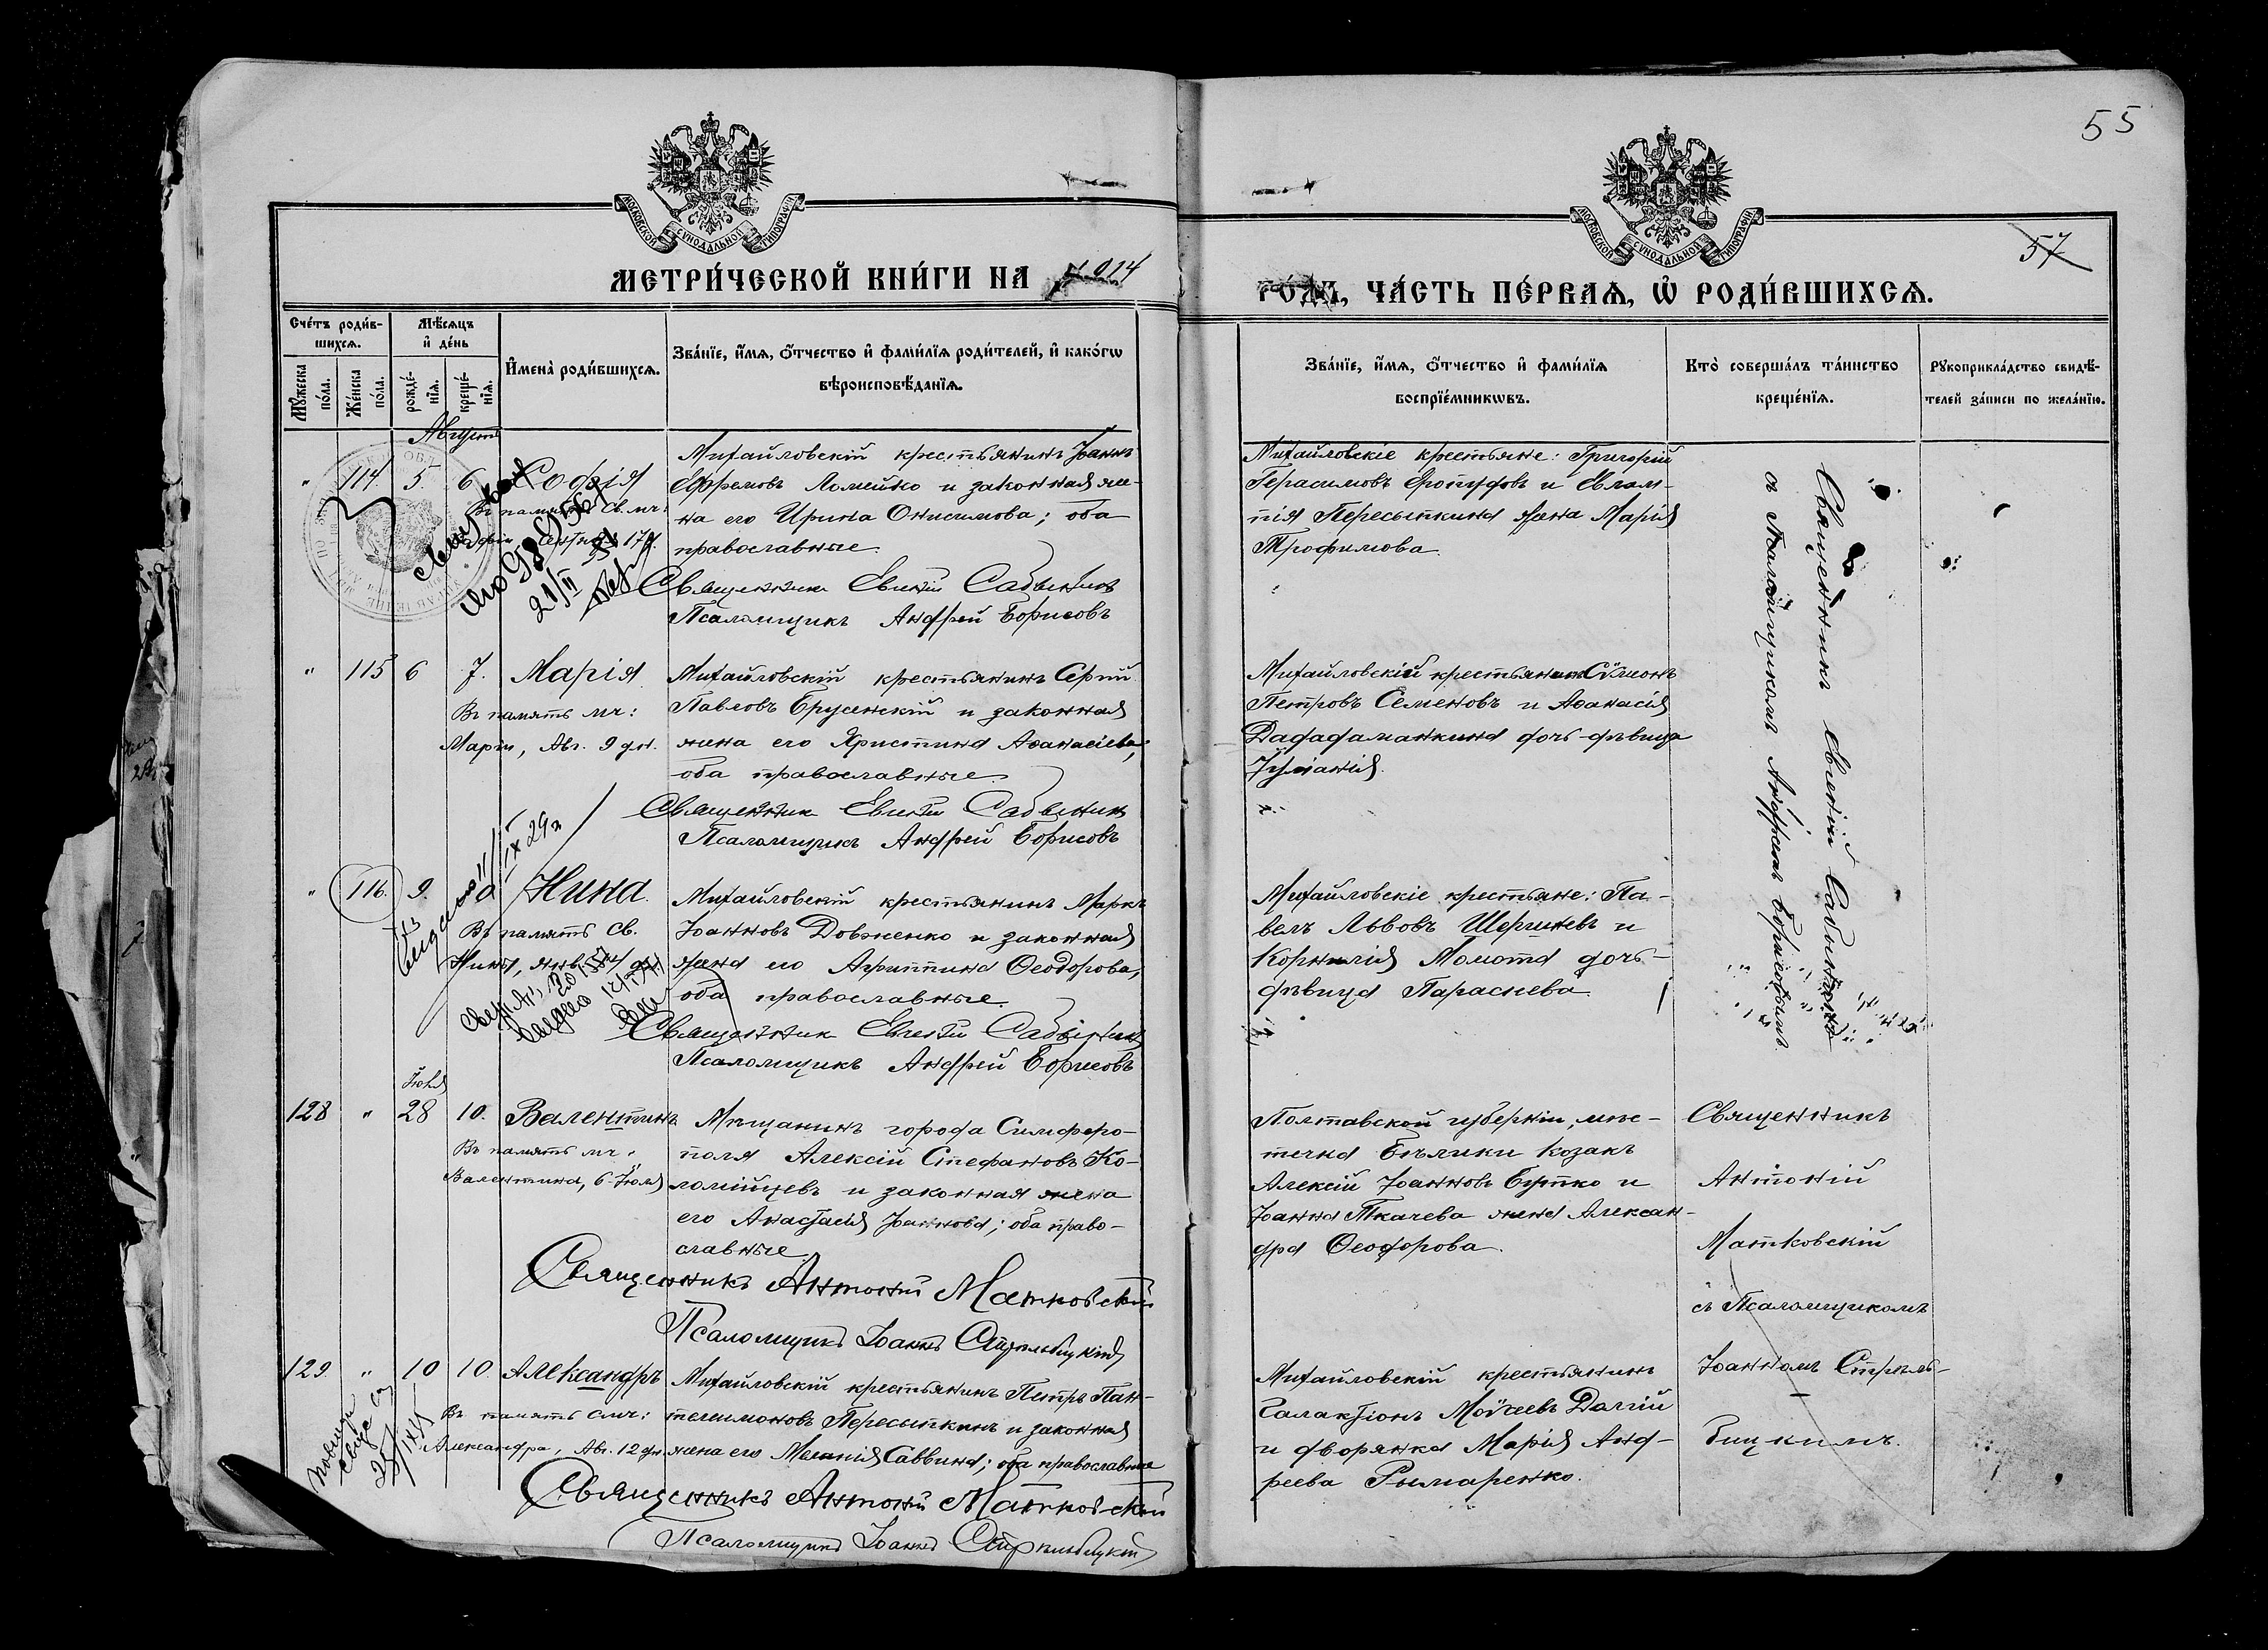 55
57
МОСКОВСКОЙ СѴНОДАЛЬНОЙ ТИПОГРАФІИ
МОСКОВСКОЙ СѴНОДАЛЬНОЙ ТИПОГРАФІИ
МЕТРИ́ЧЕСКОЙ КНИ́ГИ НА 1914
ГО́ДЪ, ЧА́СТЬ ПЕ́РВАѦ, Ѡ҆ РОДИ́ВШИХСѦ.
Сче́тъ роди́в-
шихсѧ.
Мѣ́сѧцъ
и҆ де́нь
Мꙋ́жеска
по́ла.
Же́нска
по́ла.
рожде́-
нїѧ.
креще́-
нїѧ.
И҆мена̀ роди́вшихсѧ.
Зва́нїе, и҆́мѧ, ѻ҆́тчество и҆ фами́лїѧ роди́телей, и҆ како́гѡ
вѣроисповѣ́данїѧ.
Зва́нїе, и҆́мѧ, ѻ҆́тчество и҆ фами́лїѧ
воспрїе́мникѡвъ.
Кто̀ соверша́лъ та́инство
креще́нїѧ.
Рꙋкоприкла́дство свидѣ́-
телей за́писи по жела́нїю.
Августъ
" 114. 5. 6. Софія
Въ память св. мч:
17 д.
Михайловскій крестьянинъ Іоаннъ
Ефремовъ Ломейко и законная же-
на его Ирина Онисимова; оба
православные.
Священникъ Евгеній Сабынинъ
Псаломщикъ Андрей Борисовъ
Михайловскіе крестьяне: Григорій
Герасимовъ и Евлам-
пія Пересыпкина жена Марія
Трофимова.
Священникъ Евгеній Сабынинъ
съ Псаломщикомъ Андреемъ Борисовымъ
21/II
" 115 6 7. Марія
Въ память мч:
Маріи, Авг. 9 дн.
Михайловскій крестьянинъ Сергій
Павловъ Брусенскій и законная
жена его Христина Аѳанасіева;
оба православные.
Священникъ Евгеній Сабынинъ
Псаломщикъ Андрей Борисовъ
Михайловскій крестьянинъ Сѵмеонъ
Петровъ Семеновъ и Аѳанасія
Дададаманкина дочь-дѣвица
Іуліанія.
IX 29
" 116. 9. Нина.
Въ память св.
Нины, янв.
Михайловскій крестьянинъ Маркъ
Іоанновъ Довженко и законная
жена его Агриппина Ѳеодорова;
оба православные.
Священникъ Евгеній Сабынинъ
Псаломщикъ Андрей Борисовъ
Михайловскіе крестьяне: Па-
велъ Львовъ Шергиневъ и
Корнилія Момота дочь-
дѣвица Параскева.
Іюля
128 " 28 10. Валентинъ
Въ память мч.
Валентина, 6 Іюля
Мѣщанинъ города Симферо-
поля Алексій Стефановъ Ко-
ломійцевъ и законная жена
его Анастасія Іоаннова; оба право-
славные.
Священникъ Антоній Матковскій
Псаломщикъ Іоаннъ Стрельбицкій
Полтавской губерніи, мѣс-
течка Бѣлики козакъ
Алексій Іоанновъ Бутко и
Іоанна Ткачева жена Алексан-
дра Ѳеодорова.
Священникъ
Антоній
Матковскій
съ Псаломщикомъ
Іоанномъ Стрѣль-
бицкимъ.
129. " 10 10. Александръ
Въ память смч:
Александра, Авг. 12 дн.
Михайловскій крестьянинъ Петръ Пан-
телеимоновъ Пересыпкинъ и законная
жена его Меланія Саввина; оба православные
Священникъ Антоній Матковскій
Псаломщикъ Іоаннъ Стрельбицкій
Михайловскій крестьянинъ
Галактіонъ Моѵсеевъ Далгій
и дворянка Марія Анд-
реева Рымаренко.